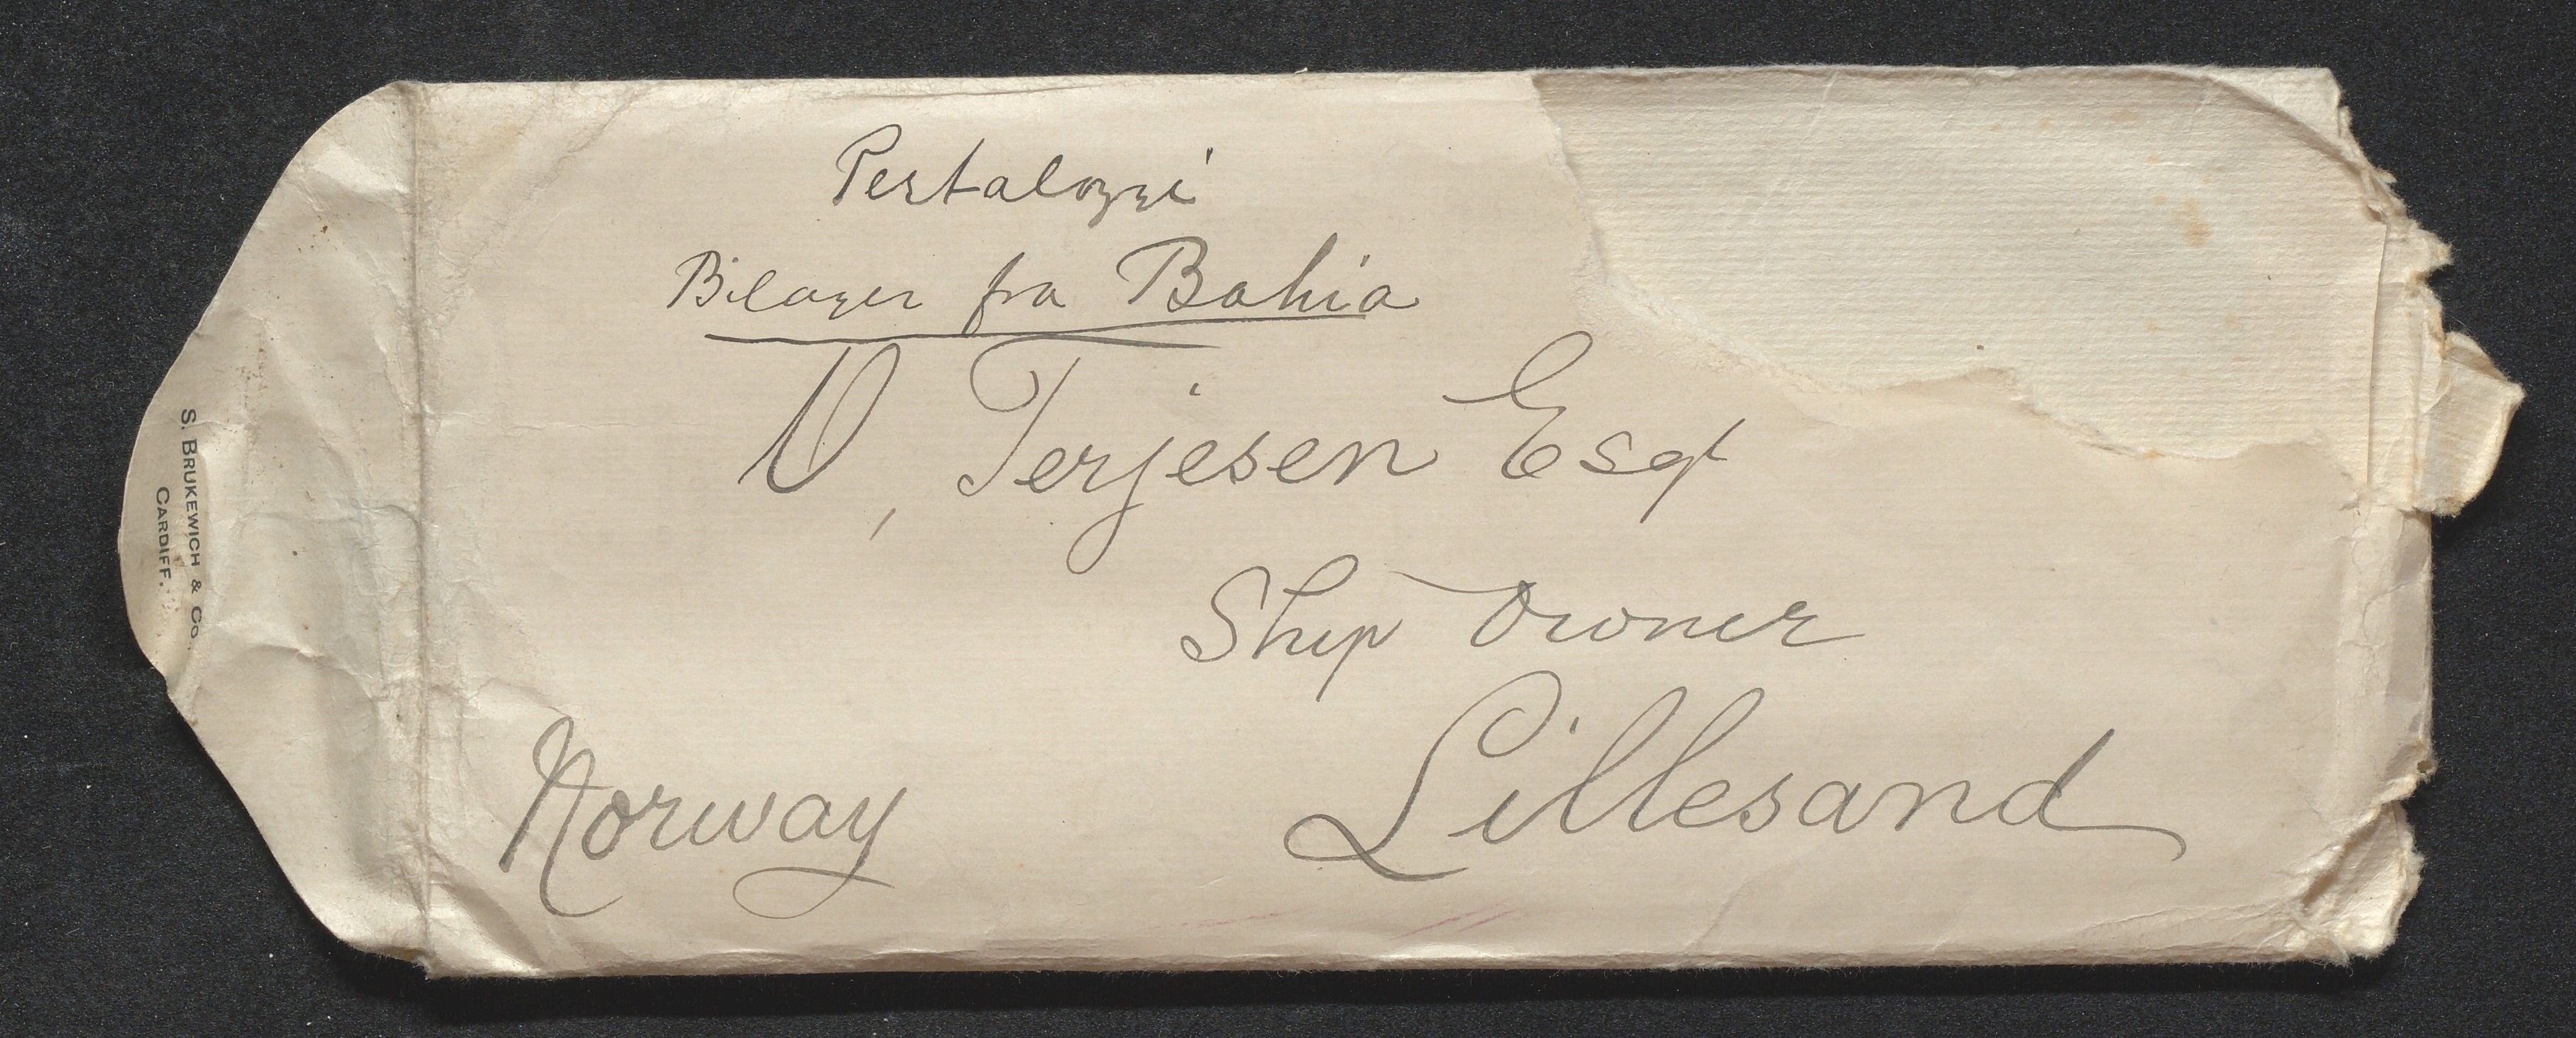 Pestalozzi
Bilager fra Bahia
O, Terjesen Esqr
Ship Owner
Lillesand
Norway
S. BRUKEWICH & Co.
CARDIFF.